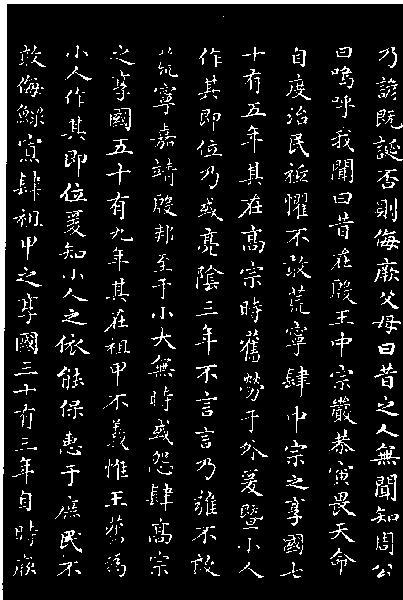 乃諺既誕否則侮厥父母曰昔之人無聞知周公
曰嗚呼我聞曰昔在殷王中宗嚴恭寅畏天命
自度治民祗懼不敢荒寧肆中宗之享國七
十有五年其在高宗時舊勞于外爰暨小人
作其即位乃或亮陰三年不言言乃雍不敢
荒寧嘉靖殷邦至于小大無時或怨肆高宗
之享國五十有九年其在祖甲不義惟王舊爲
小人作其即位爰知小人之依能保惠于庶民不
敢侮鰥寡肆祖甲之享國三十有三年自時厥